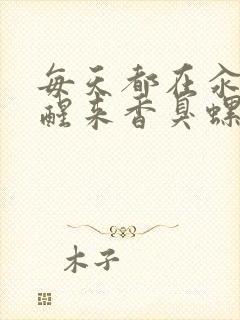 每天都在汆
醒来香臭螺
木子